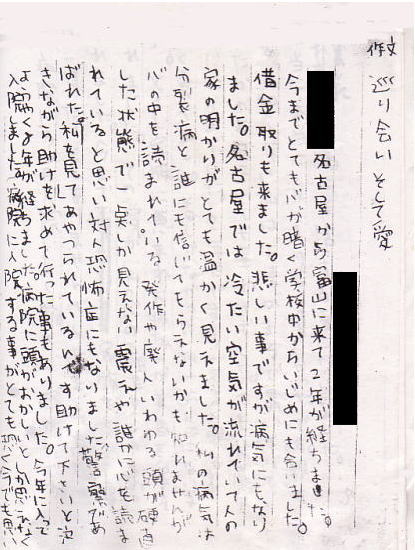 作文 巡り合いそして愛
名古屋から富山に来て2年が経ちました。
今までとても心が暗く学校中からいじめにも合いました。
借金取りも来ました。悲しい事ですが病気にもなり
ました。名古屋では冷たい空気が流れていて人の
家の明かりがとても温かく見えました。私の病気は
分裂病と誰にも信いてもらえないかも知れませんが
心の中を読まれている発作や廃人いわゆる頭が硬直
した状態で一点しか見えない震えや誰かに心を読ま
れていると思い対人恐怖症にもなりました警察であ
ばれた。「私を見てあやつられているんです助けて下さいと泣
きながら助けを求めて行った事もありました。今年に入って
年が経ちました。病院に頭がおかしいとしか思われなく
入院しました。病院に入院する事がとても 今でも思